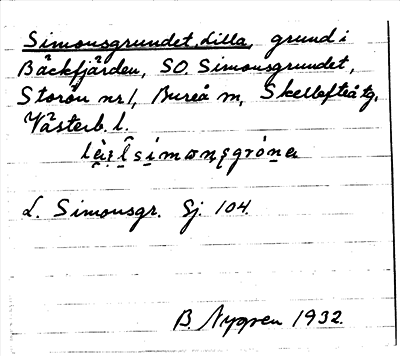 Simonsgrundet, Lilla, grund i
Bäckfjärden, SO. Simonsgrundet,
Storön nr 1, Bureå sn, Skellefteå tg,
Västerb. l.
L. Simonsgr. Sj. 104.
B. Nygren 1932.